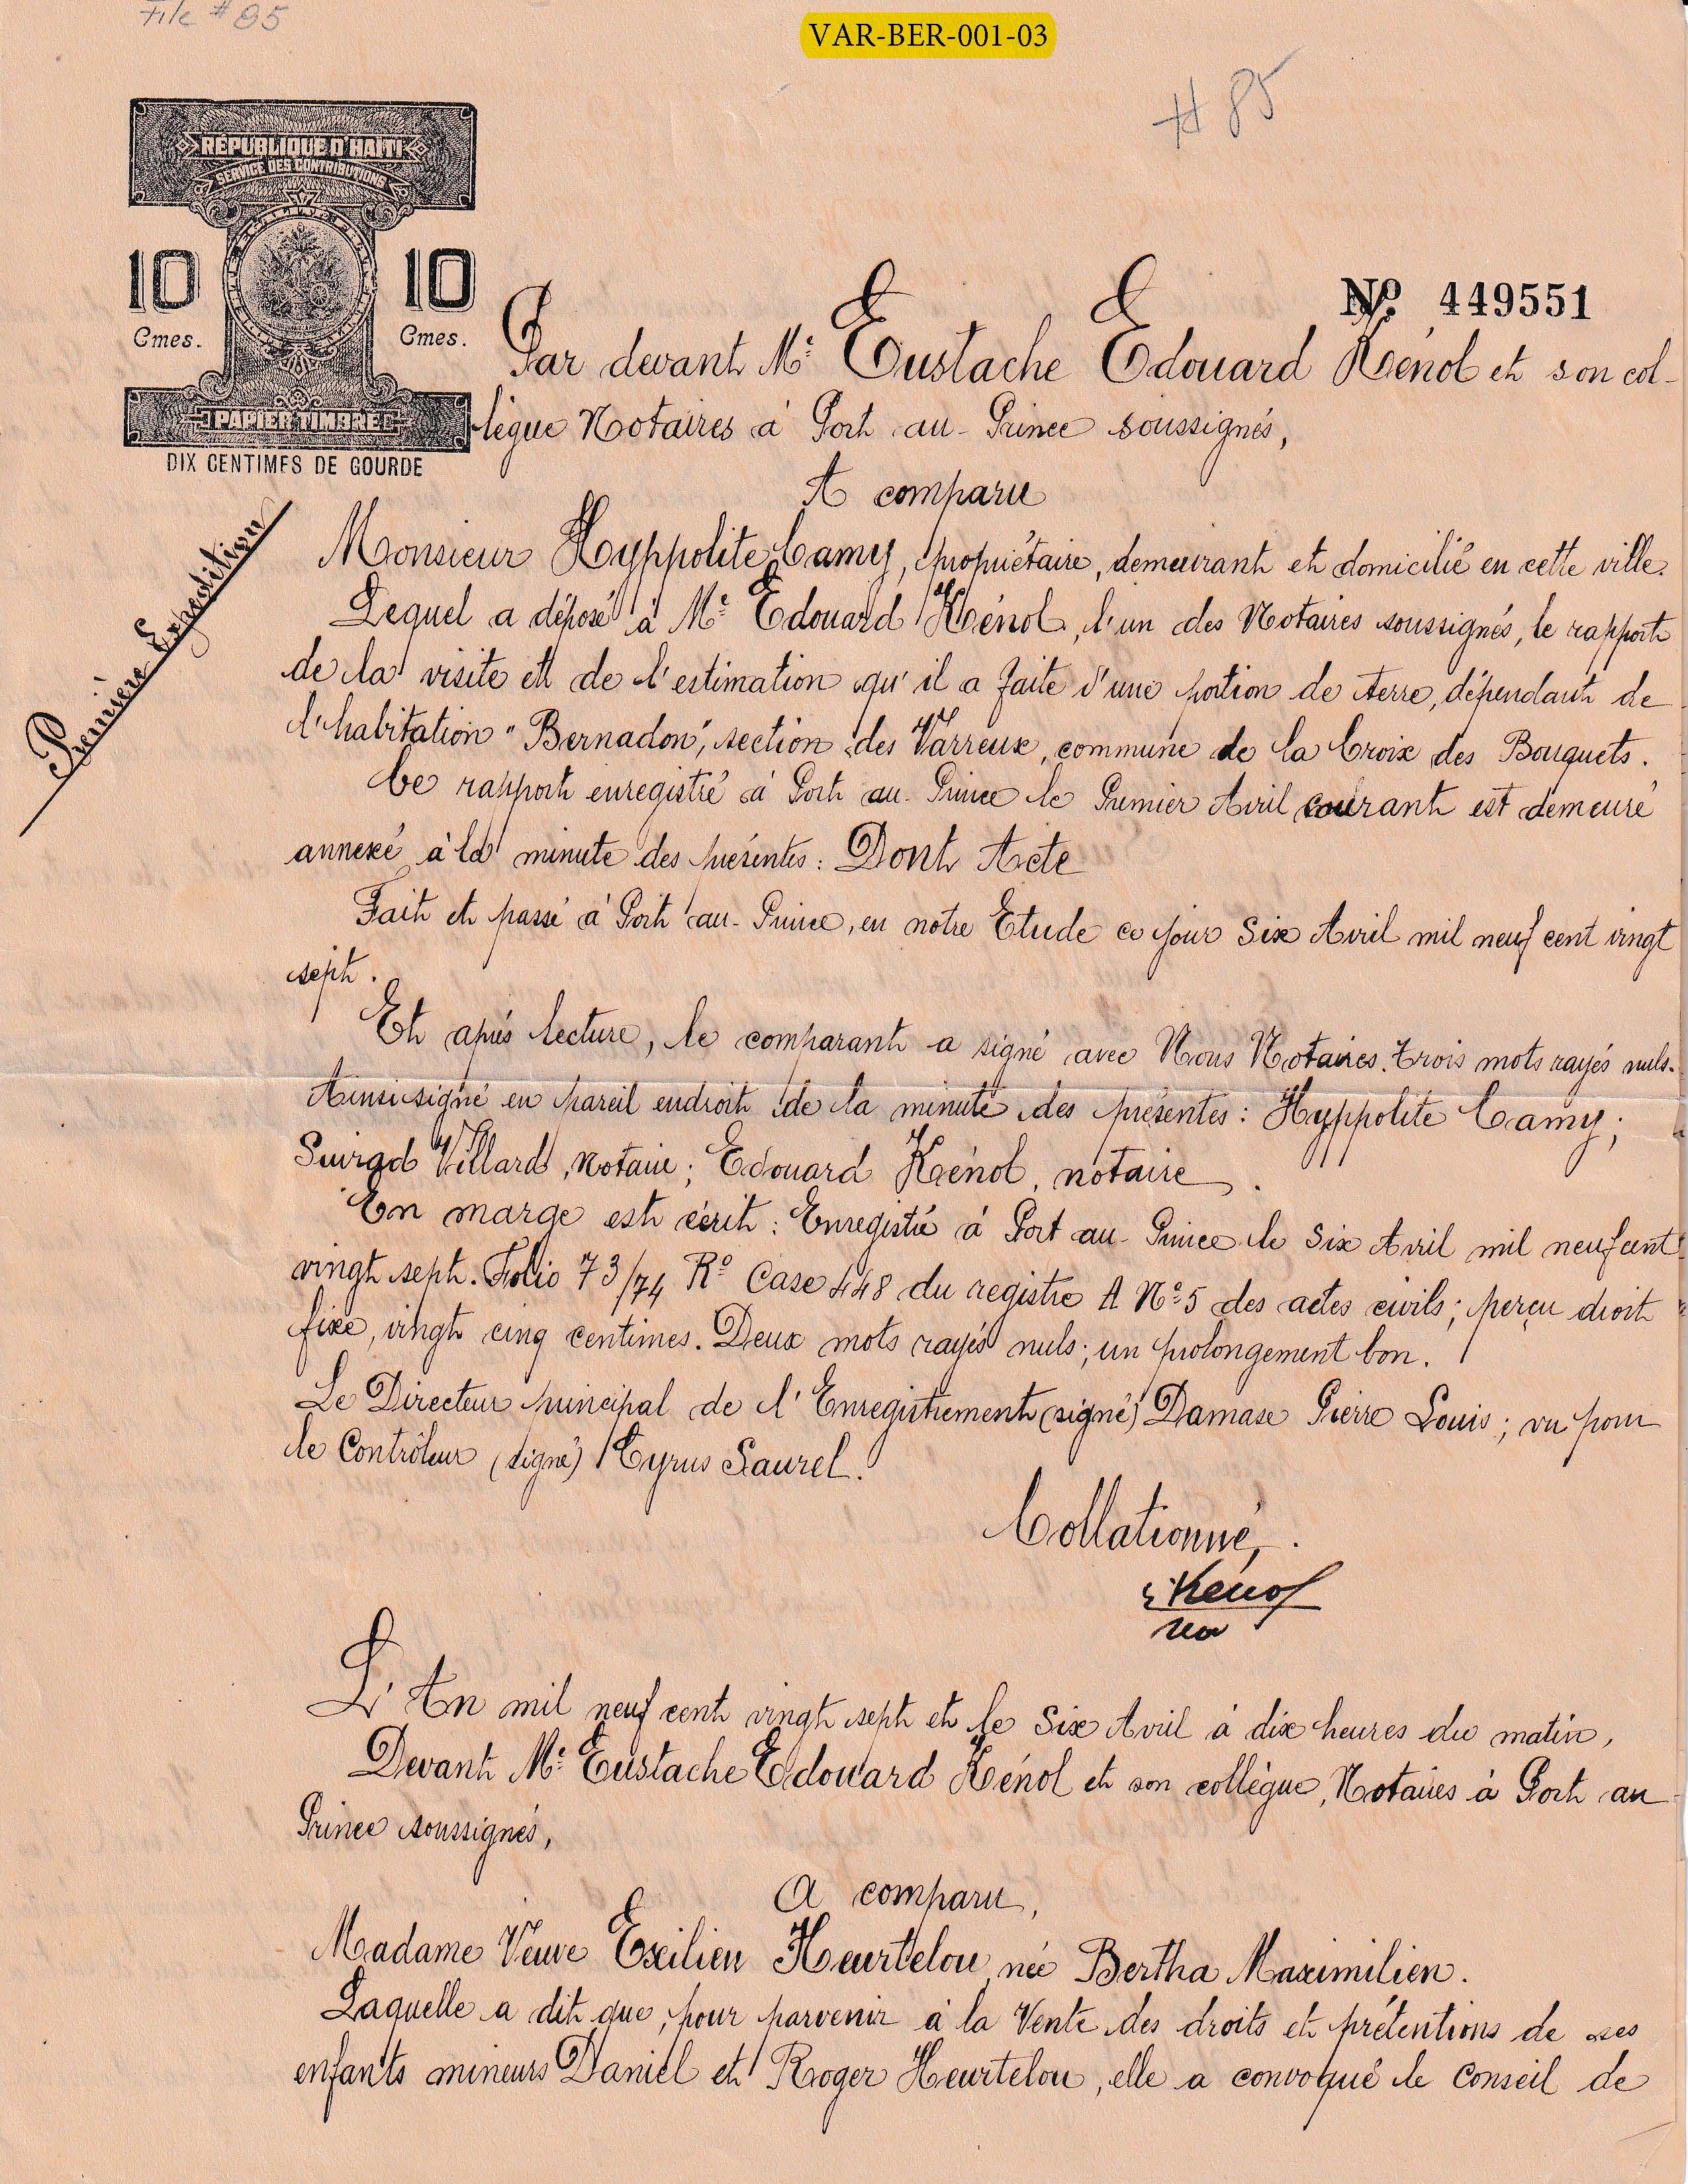 File # 85
VAR-BER-001-03
# 85
RÉPUBLIQUE D'HAITI
SERVICE DES CONTRIBUTIONS
10 10
Cmes. Cmes.
PAPIER TIMBRÉ
DIX CENTIMES DE GOURDE
Nº 449551
Première Expédition
Par devant Mᵉ Eustache Edouard Kénol et son col-
lègue Notaires à Port au-Prince soussignés,
A comparu
Monsieur Hyppolite Camy, propriétaire, demeurant et domicilié en cette ville.
Lequel a déposé à Mᵉ Edouard Kénol, l'un des Notaires soussignés, le rapport
de la visite et de l'estimation qu'il a faite d'une portion de terre, dépendant de
l'habitation "Bernadon", section des Varreux, commune de la Croix des Bouquets.
Ce rapport enregistré à Port au-Prince le Premier Avril courant est demeuré
annexé à la minute des présentes: Dont Acte
Fait et passé à Port au-Prince, en notre Etude ce jour Six Avril mil neuf cent vingt
sept.
Et après lecture, le comparant a signé avec Nous Notaires. trois mots rayés nuls.
Ainsi signé en pareil endroit de la minute des présentes: Hyppolite Camy;
Suirad Villard, Notaire; Edouard Kénol, notaire.
En marge est écrit: Enregistré à Port au-Prince le Six Avril mil neuf cent
vingt sept. Folio 73/74 Rº Case 448 du registre A Nº 5 des actes civils; perçu droit
fixe, vingt cinq centimes. Deux mots rayés nuls; un prolongement bon.
Le Directeur principal de l'Enregistrement (signé) Damase Pierre Louis; vu pour
le Contrôleur (signé) Cyrus Saurel.
Collationné,
E Kénol
no
L'An mil neuf cent vingt sept et le Six Avril à dix heures du matin,
Devant Mᵉ Eustache Edouard Kénol et son collègue, Notaires à Port au
Prince soussignés,
A comparu,
Madame Veuve Exilien Heurtelou, née Bertha Maximilien.
Laquelle a dit que, pour parvenir à la Vente des droits et prétentions de ses
enfants mineurs Daniel et Roger Heurtelou, elle a convoqué le Conseil de